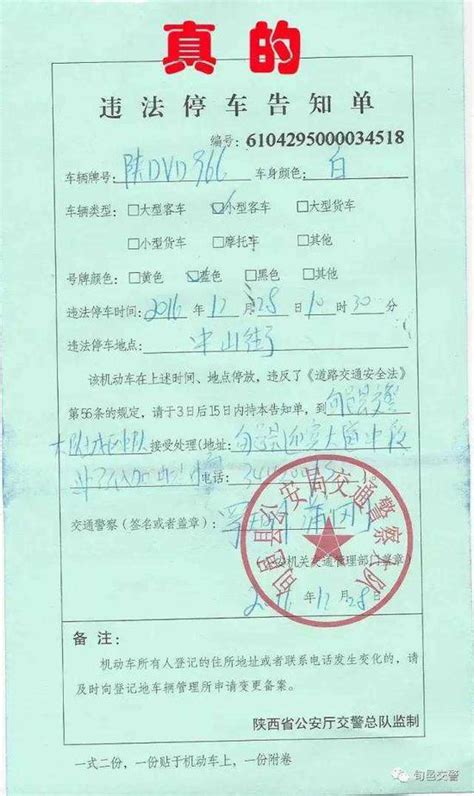 真的
违法停车告知单
编号:6104295000034518
车辆牌号:陕DVD366 车身颜色:白
车辆类型:□大型客车 ☑小型客车 □大型货车
□小型货车 □摩托车 □其他
号牌颜色:□黄色 ☑蓝色 □黑色 □其他
违法停车时间:2016年12月28日10时30分
违法停车地点:中山街
该机动车在上述时间、地点停放，违反了《道路交通安全法》
第56条的规定，请于3日后15日内持本告知单，到旬邑县交警
大队 接受处理(地址:旬邑县 大道中段
电话:
交通警察(签名或者盖章):
旬邑县公安局交通警察大队
公安机关交通管理部门(盖章)
2016年12月28日
备注:
机动车所有人登记的住所地址或者联系电话发生变化的，请
及时向登记地车辆管理所申请变更备案。
陕西省公安厅交警总队监制
一式二份，一份贴于机动车上，一份附卷
旬邑交警